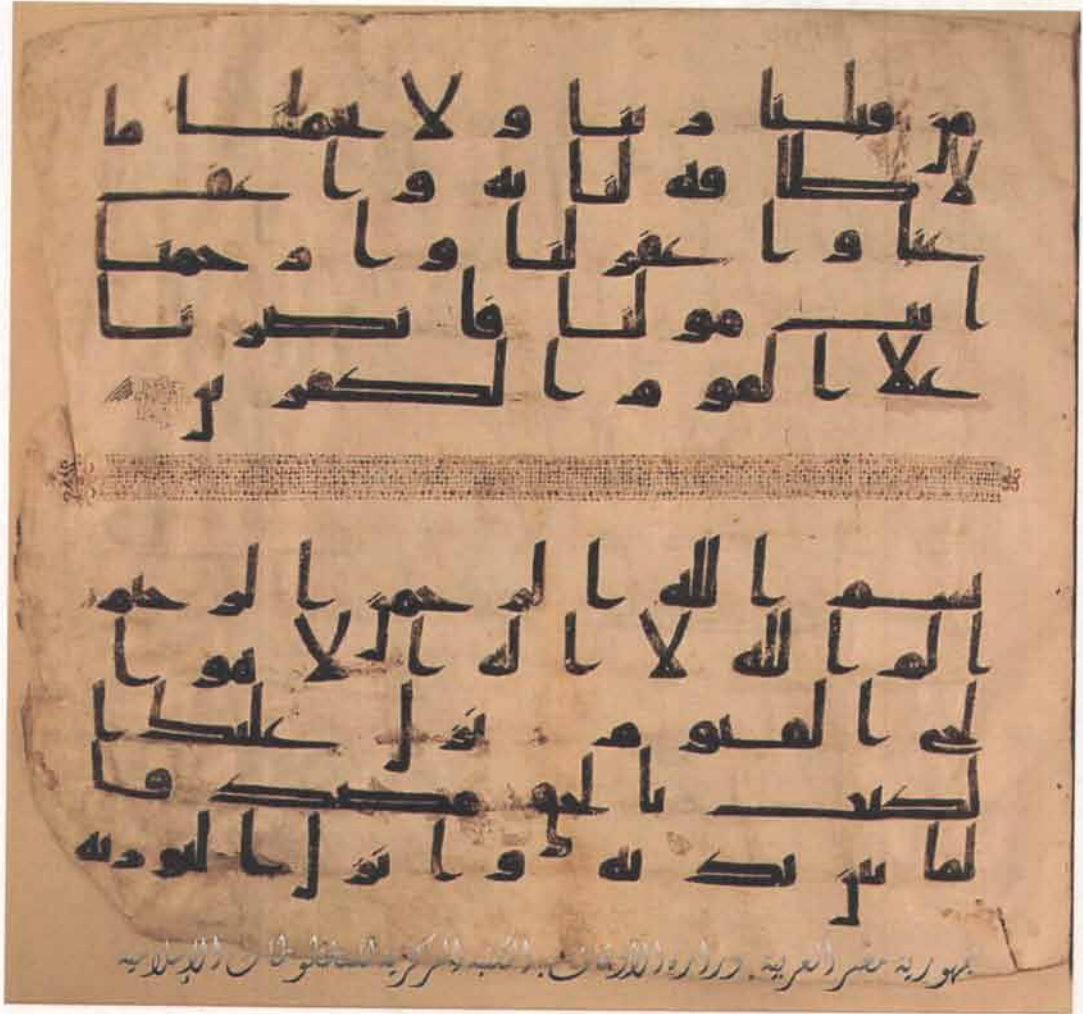 من قبلنا ربنا ولا تحملنا ما
لا طاقه لنا به واعف
عنا واغفر لنا وارحمنا
انت مولنا فانصرنا
علا القوم الكفر
ين
بسم الله الرحمن الرحيم
الم الله لا اله الا هو ا
لحى القيوم نزل عليك ا
لكتب بالحق مصدقا
لما بين يديه وانزل التوريه
جمهورية مصر العربية . وزارة الأوقاف . المكتبة المركزية للمخطوطات الإسلامية